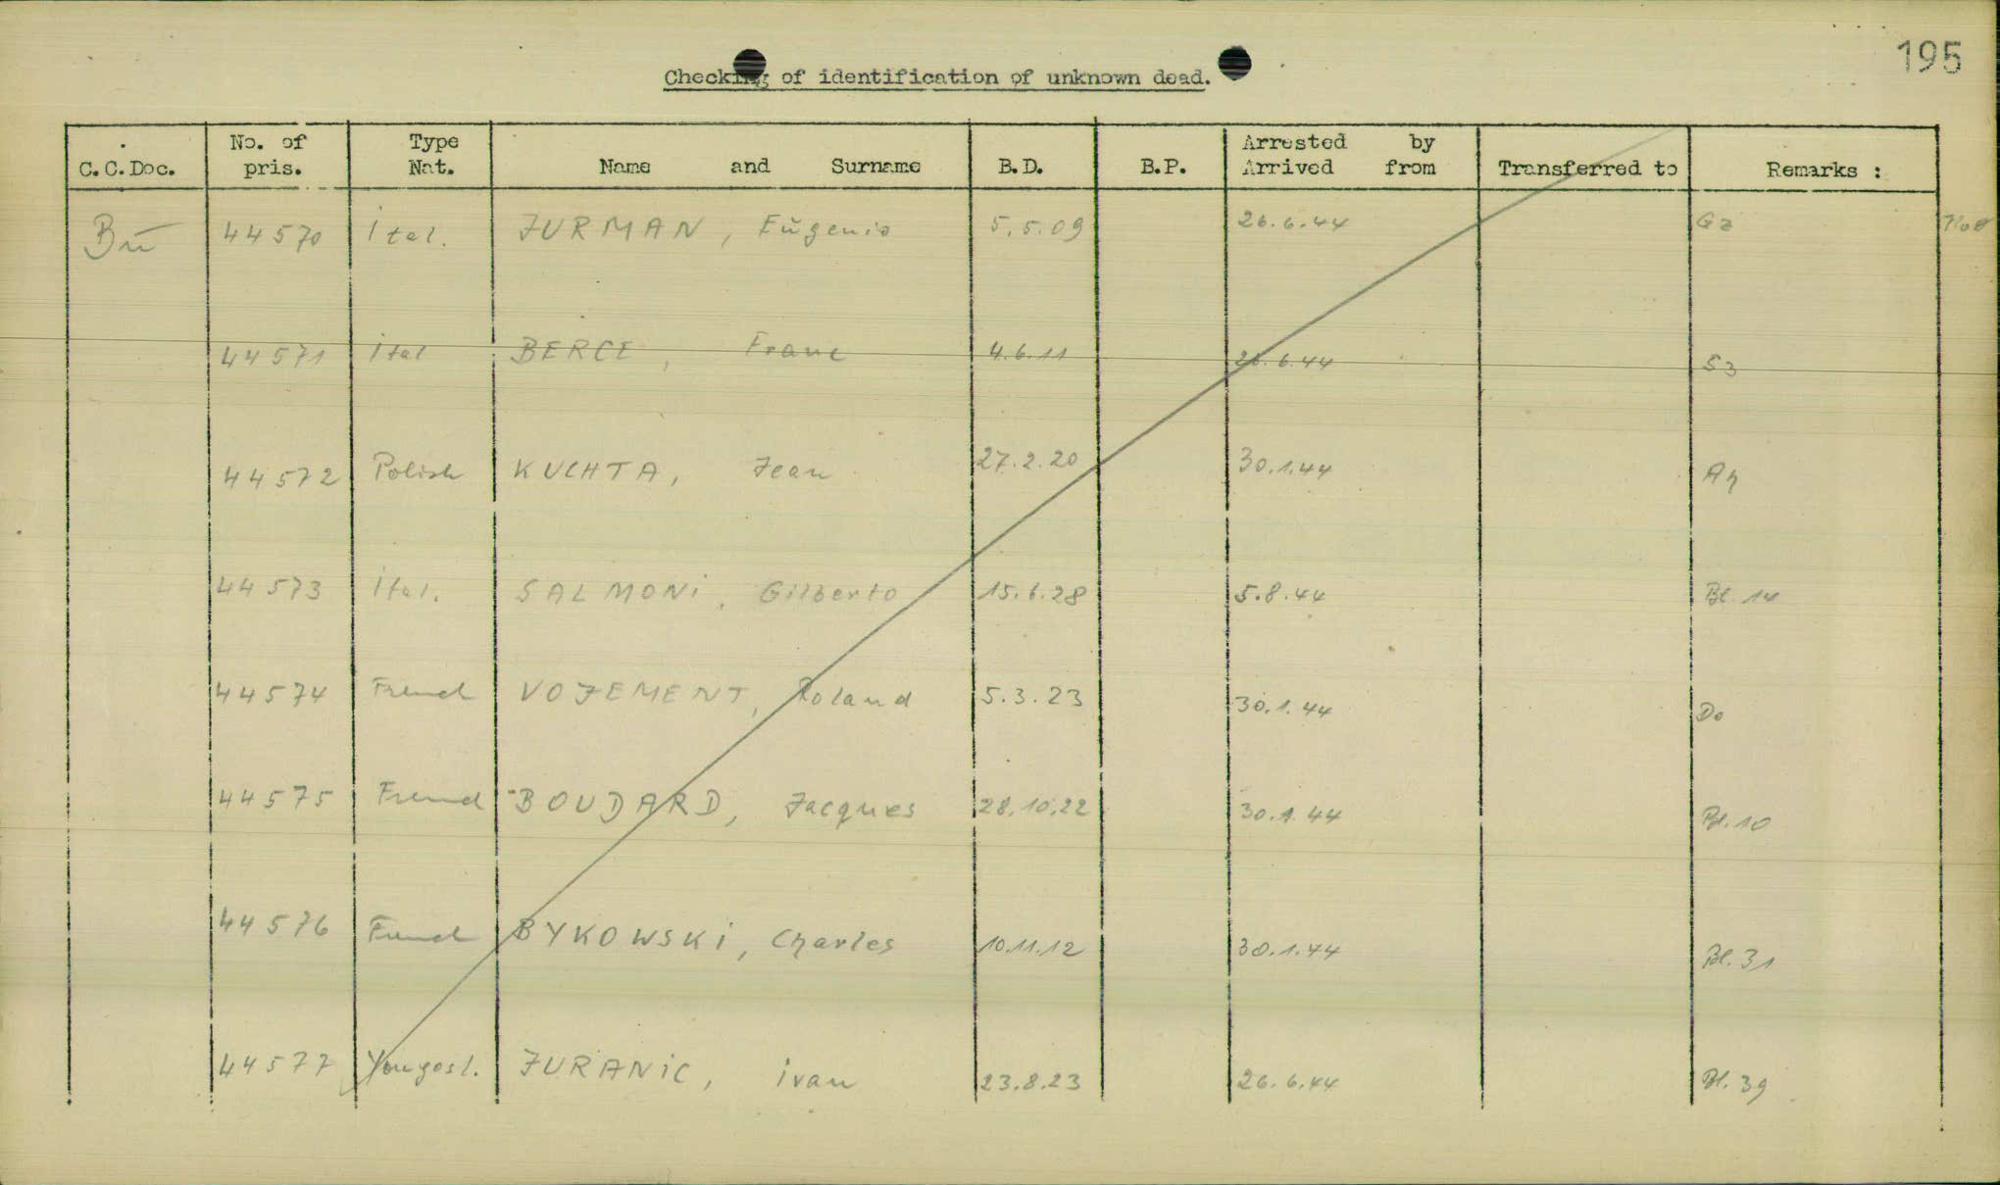 195
Checking of identification of unknown dead.
C.C.Doc. No. of pris. Type Nat. Name and Surname B.D. B.P. Arrested by Arrived from Transferred to Remarks :
Bu 44570 Ital. JURMAN, Eŭgenio 5.5.09 26.6.44 Ga
44571 Ital BERCE, Franc 4.6.11 26.6.44 S3
44572 Polish KUCHTA, Jean 27.2.20 30.1.44
44573 Ital. SALMONi, Gilberto 15.6.28 5.8.44 Bl. 14
44574 French VOJEMENT, Roland 5.3.23 30.1.44 Do
44575 French BOUDARD, Jacques 28.10.22 30.1.44 Bl. 10
44576 French BYKOWSKi, Charles 10.11.12 30.1.44 Bl. 31
44577 Yougosl. JURANiC, ivan 23.8.23 26.6.44 Bl. 39